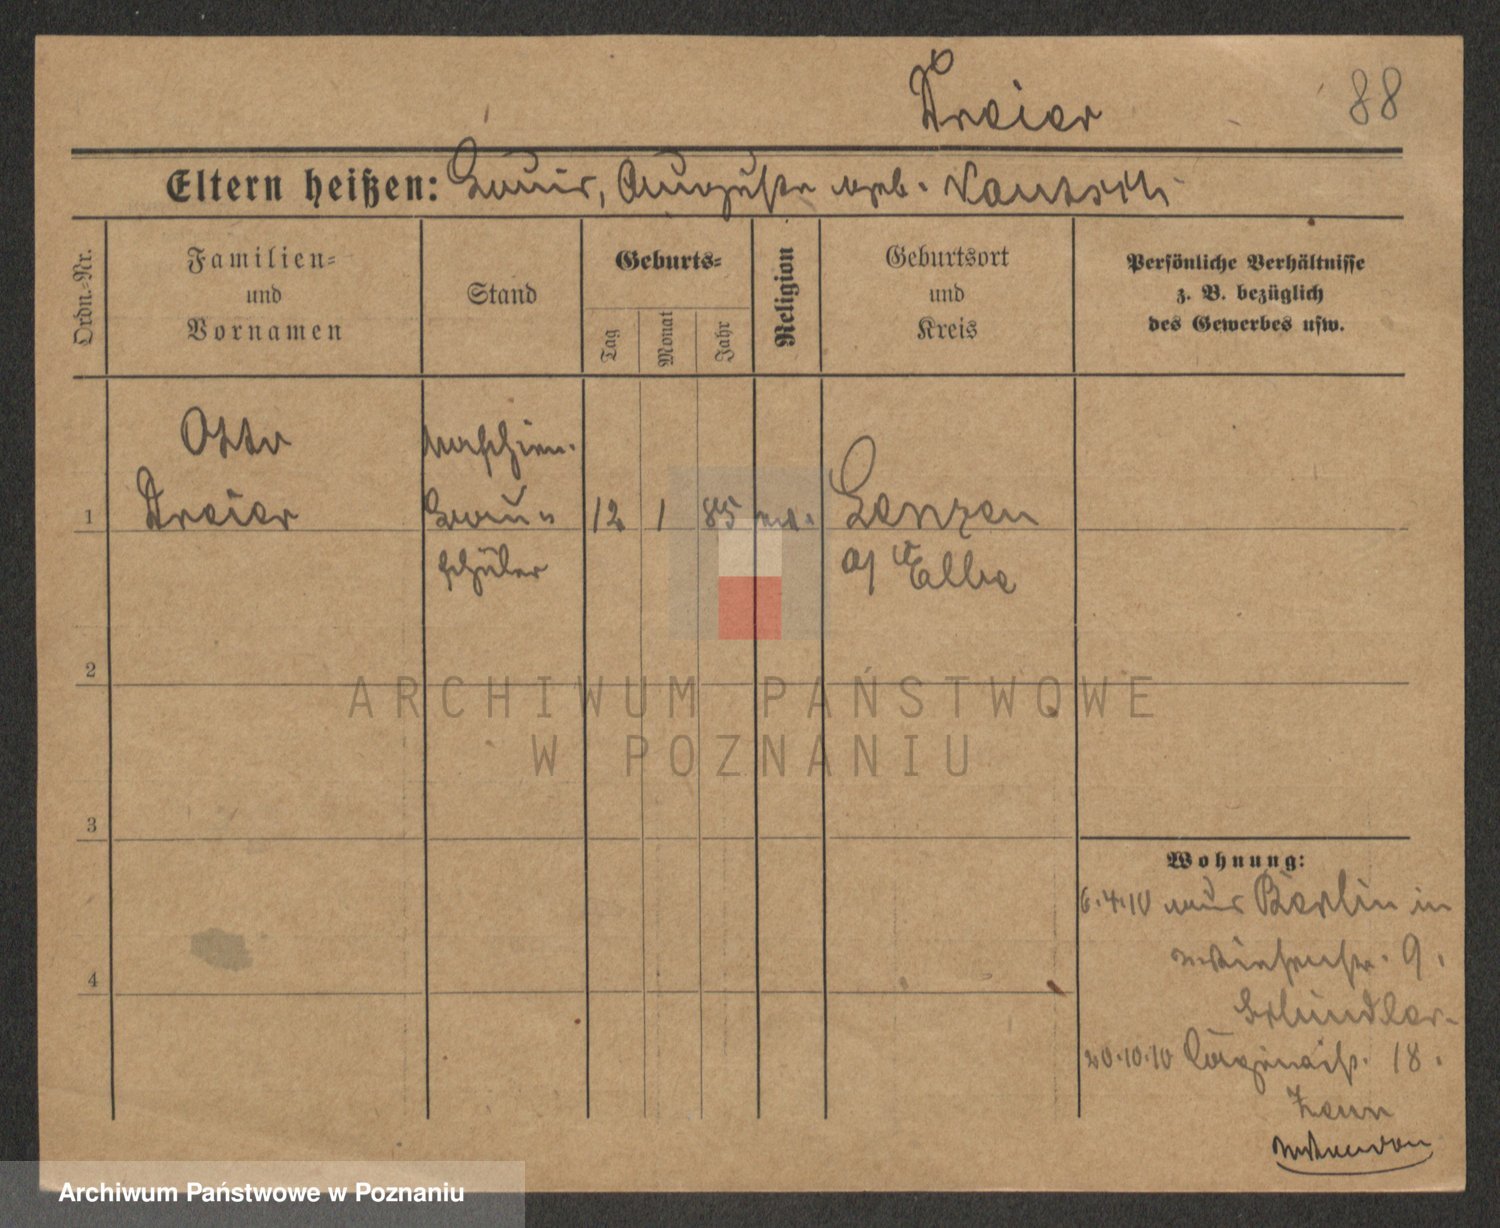 Dreier
88
Eltern heißen: Louis, Auguste geb.
Ordn.-Nr.
Familien-
und
Vornamen
Stand
Geburts-
Tag
Monat
Jahr
Religion
Geburtsort
und
Kreis
Persönliche Verhältnisse
z. B. bezüglich
des Gewerbes usw.
Otto
Maschien.
1
Dreier
Bau-
12
1
85
ev.
Lenzen
schüler
a/ Elbe
2
ARCHIWUM PAŃSTWOWE
W POZNANIU
3
Wohnung:
6.4.10 aus Berlin in
9.
4
20.10.10 18.
Archiwum Państwowe w Poznaniu